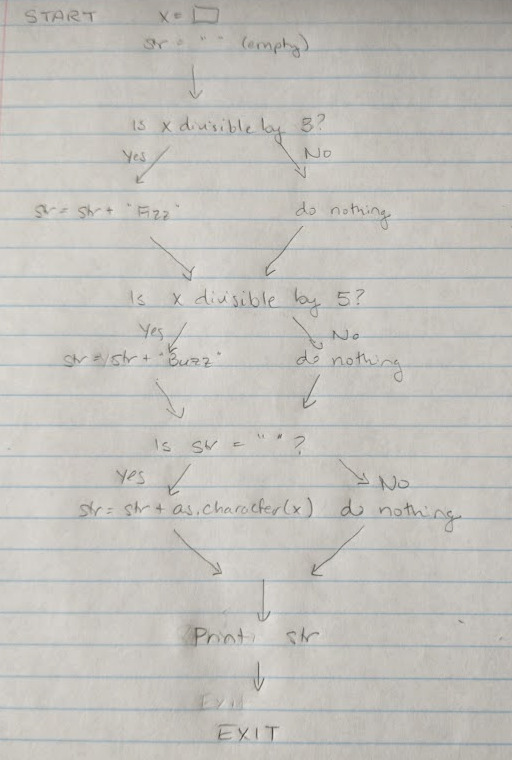 START x = □
str = " " (empty)
Is x divisible by 3?
Yes No
str = str + "Fizz" do nothing
Is x divisible by 5?
Yes No
str = str + "Buzz" do nothing
Is str = " " ?
Yes No
str = str + as.character(x) do nothing
Print: str
Exit
EXIT